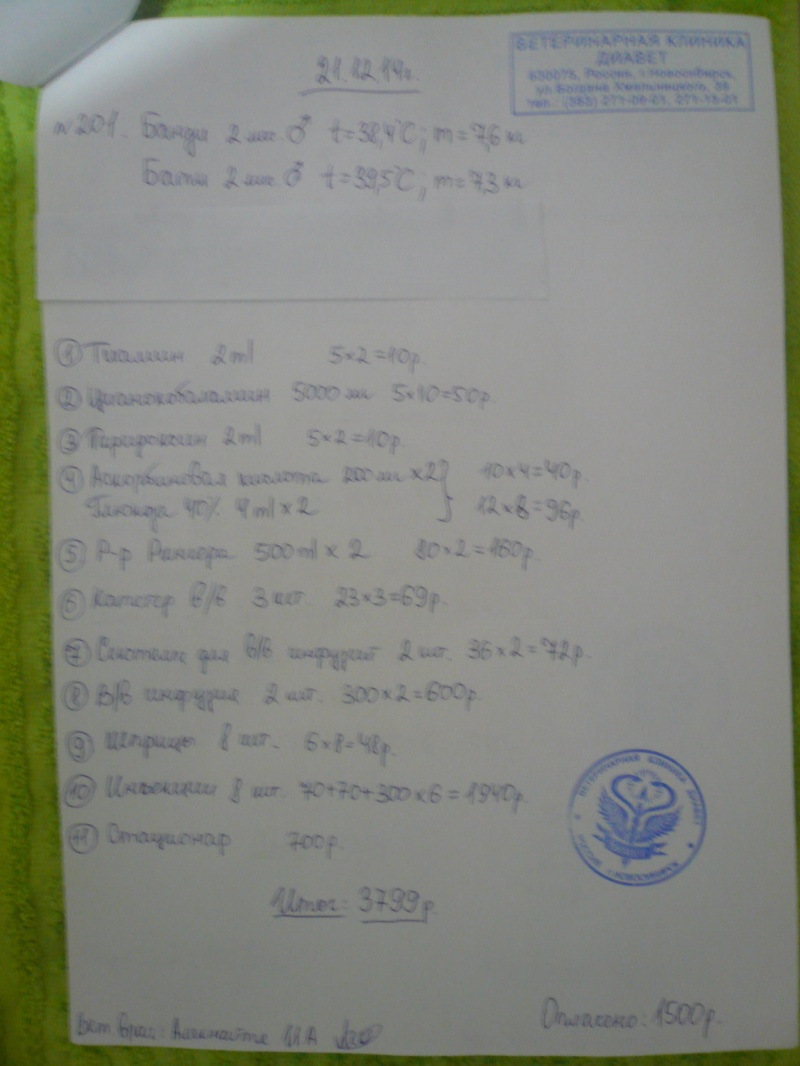 ВЕТЕРИНАРНАЯ КЛИНИКА
ДИАВЕТ
630075, Россия, г.Новосибирск,
ул.Богдана Хмельницкого, 36
тел.: (383) 271-09-01, 271-15-01
21.12.14г.
№201. Банди 2 мес. ♂ t=38,4°C; m=7,6 кг
Батти 2 мес. ♂ t=39,5°C; m=7,3 кг
① Тиамин 2 ml 5×2=10р.
② Цианокобаламин 5000 мкг 5×10=50р.
③ Пиридоксин 2 ml 5×2=10р.
④ Аскорбиновая кислота 200 мг ×2 10×4=40р.
Глюкоза 40% 4 ml × 2 12×8=96р.
⑤ Р-р Рингера 500 ml × 2 80×2=160р.
⑥ Катетер в/в 3 шт. 23×3=69р.
⑦ Системы для в/в инфузий 2 шт. 36×2=72р.
⑧ В/в инфузия 2 шт. 300×2=600р.
⑨ Шприцы 8 шт. 6×8=48р.
⑩ Инъекции 8 шт. 70+70+300×6=1940р.
⑪ Стационар 700р.
Итог: 3799р.
ВЕТЕРИНАРНАЯ КЛИНИКА ДИАВЕТ
РОССИЯ г.НОВОСИБИРСК
Оплачено: 1500р.
Вет врач: